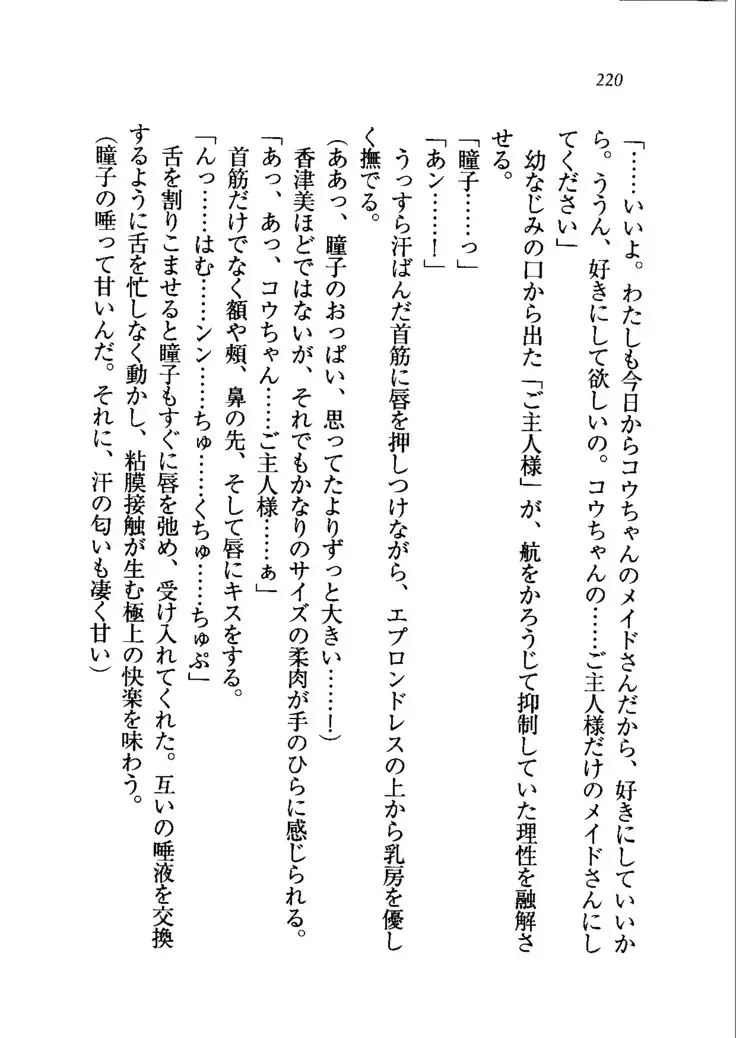 220
「……いいよ。わたしも今日からコウちゃんのメイドさんだから、好きにしていいか
ら。ううん、好きにして欲しいの。コウちゃんの……ご主人様だけのメイドさんにし
てください」
　幼なじみの口から出た「ご主人様」が、航をかろうじて抑制していた理性を融解さ
せる。
「瞳子……っ」
「あン……！」
　うっすら汗ばんだ首筋に唇を押しつけながら、エプロンドレスの上から乳房を優し
く撫でる。
（ああっ、瞳子のおっぱい、思ってたよりずっと大きい……！）
　香津美ほどではないが、それでもかなりのサイズの柔肉が手のひらに感じられる。
「あっ、あっ、コウちゃん……ご主人様……ぁ」
　首筋だけでなく額や頬、鼻の先、そして唇にキスをする。
「んっ……はむ……ンン……ちゅ……くちゅ……ちゅぷ」
　舌を割りこませると瞳子もすぐに唇を弛め、受け入れてくれた。互いの唾液を交換
するように舌を忙しなく動かし、粘膜接触が生む極上の快楽を味わう。
（瞳子の唾って甘いんだ。それに、汗の匂いも凄く甘い）